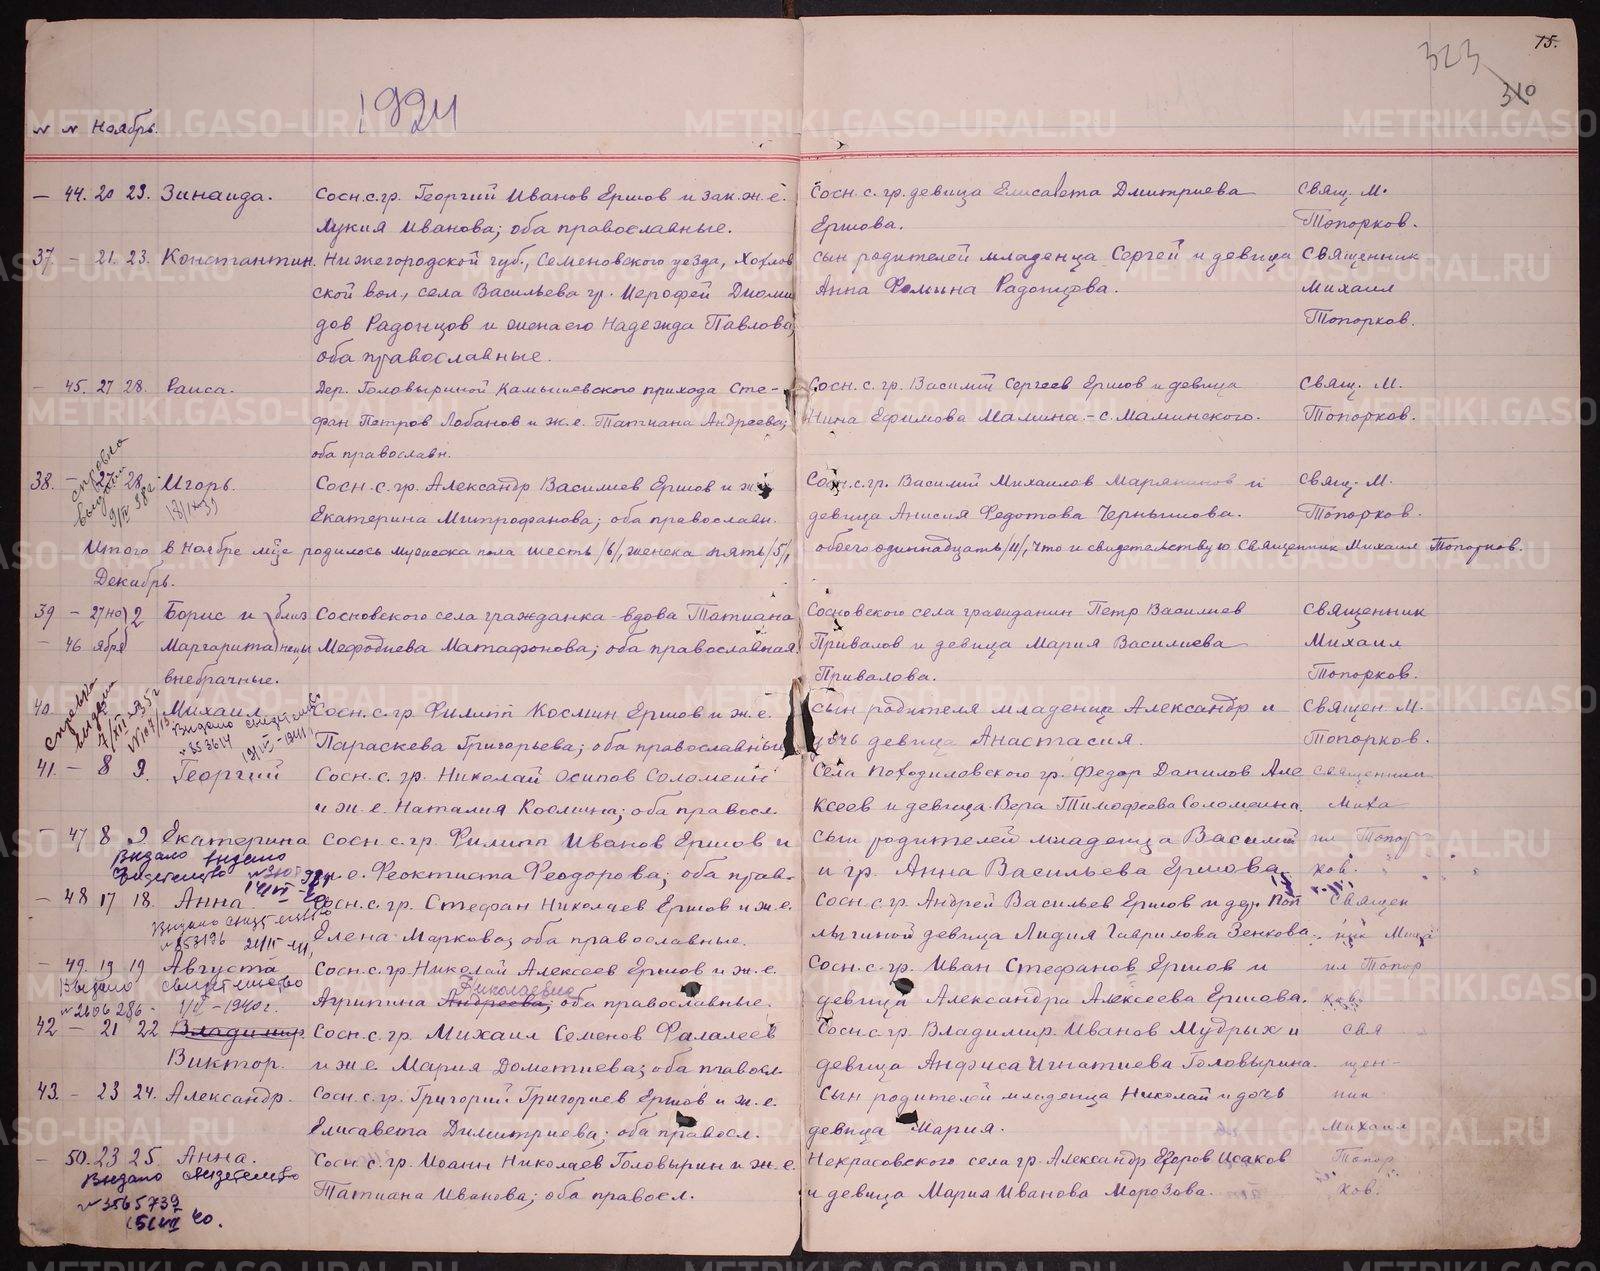 15.
323
310
1924
№ № Ноябрь.
— 44. 20 23. Зинаида. Сосн. с. гр. Георгий Иванов Ершов и зак. ж. е. Сосн. с. гр. девица Елисавета Дмитриева Свящ. М.
Лукия Иванова; оба православные. Ершова. Топорков.
37. — 21. 23. Константин. Нижегородской губ., Семеновского уезда, Хохлов сын родителей младенца Сергей и девица Священник
ской вол., села Васильева гр. Иерофей Диоми Анна Фомина Радонцова. Михаил
дов Радонцов и жена его Надежда Павлова; Топорков.
оба православные.
— 45. 27 28. Раиса. Дер. Головыриной Камышевского прихода Сте- Сосн. с. гр. Василий Сергеев Ершов и девица Свящ. М.
фан Петров Лобанов и ж. е. Татиана Андреева; Нина Ефимова Мамина - с. Маминского. Топорков.
оба православн.
справка
выдана
38. — 27 28. Игорь. Сосн. с. гр. Александр Василиев Ершов и ж. Сосн. с. гр. Василий Михаилов Марянинов и Свящ. М.
13/IX 39 Екатерина Митрофанова; оба православн. девица Анисия Федотова Чернышова. Топорков.
Итого в Ноябре м-це родилось мужеска пола шесть /6/, женска пять /5/, обоего одиннадцать /11/, что и свидетельствую Священник Михаил Топорков.
Декабрь.
39 — 27 но 2 Борис и близ Сосновского села гражданка - вдова Татиана Сосновского села гражданин Петр Василиев Священник
— 46 ября Маргарита нецы Мефодиева Матафонова; оба православная. Привалов и девица Мария Василиева Михаил
внебрачные. Привалова. Топорков.
справка
выдана
40. Михаил Сосн. с. гр. Филипп Космин Ершов и ж. е. сын родителя младенца Александр и Священ. М.
Выдано свидетельство
Параскева Григорьева; оба православные дочь девица Анастасия. Топорков.
41. — 8 9. Георгий Сосн. с. гр. Николай Осипов Соломеин Села Походиловского гр. Федор Данилов Але Священник
и ж. е. Наталия Космина; оба правосл. ксеев и девица Вера Тимофеева Соломеина. Миха
— 47 8 9 Екатерина Сосн. с. гр. Филипп Иванов Ершов и сын родителей младенца Василий ил Топор
Выдано
свидетельство ж. е. Феоктиста Феодорова; оба прав. и гр. Анна Васильева Ершова. ков.
— 48 17 18. Анна. Сосн. с. гр. Стефан Николаев Ершов и ж. е. Сосн. с. гр. Андрей Васильев Ершов и дер. Священ
Выдано свидетельство
№ 853196 Елена Маркова; оба православные. девица Лидия Гаврилова Зенкова. ник Миха
— 49. 19 19 Августа Сосн. с. гр. Николай Алексеев Ершов и ж. е. Сосн. с. гр. Иван Стефанов Ершов и ил Топор
Выдано свидетельство Николаевна
№ 2606286 - 1940 г. Агрипина Андреева; оба православные. девица Александра Алексеева Ершова. ков.
42 — 21 22 Владимир Сосн. с. гр. Михаил Семенов Фалалеев Сосн. с. гр. Владимир Иванов Мудрых и свя
Виктор. и ж. е. Мария Дометиева; оба правосл. девица Анфиса Игнатиева Головырина. щен-
43. — 23 24. Александр. Сосн. с. гр. Григорий Григориев Ершов и ж. е. Сын родителей младенца Николай и дочь ник
Елисавета Димитриева; оба правосл. девица Мария. Михаил
— 50. 23 25 Анна. Сосн. с. гр. Иоанн Николаев Головырин и ж. е. Некрасовского села гр. Александр Егоров Исаков Топор
Выдано свидетельство
№ 3565739 Татиана Иванова; оба правосл. и девица Мария Иванова Морозова. ков.
40.